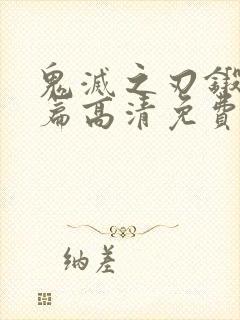 鬼滅之刃鍛
篇高清免費
纳差